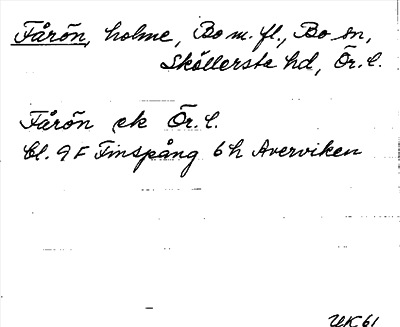 Fårön, holme, Bo m. fl., Bo sn,
Sköllersta hd, Ör. l.
Fårön ek Ör. l.
bl. 9 F Finspång 6 h Averviken
UK 61